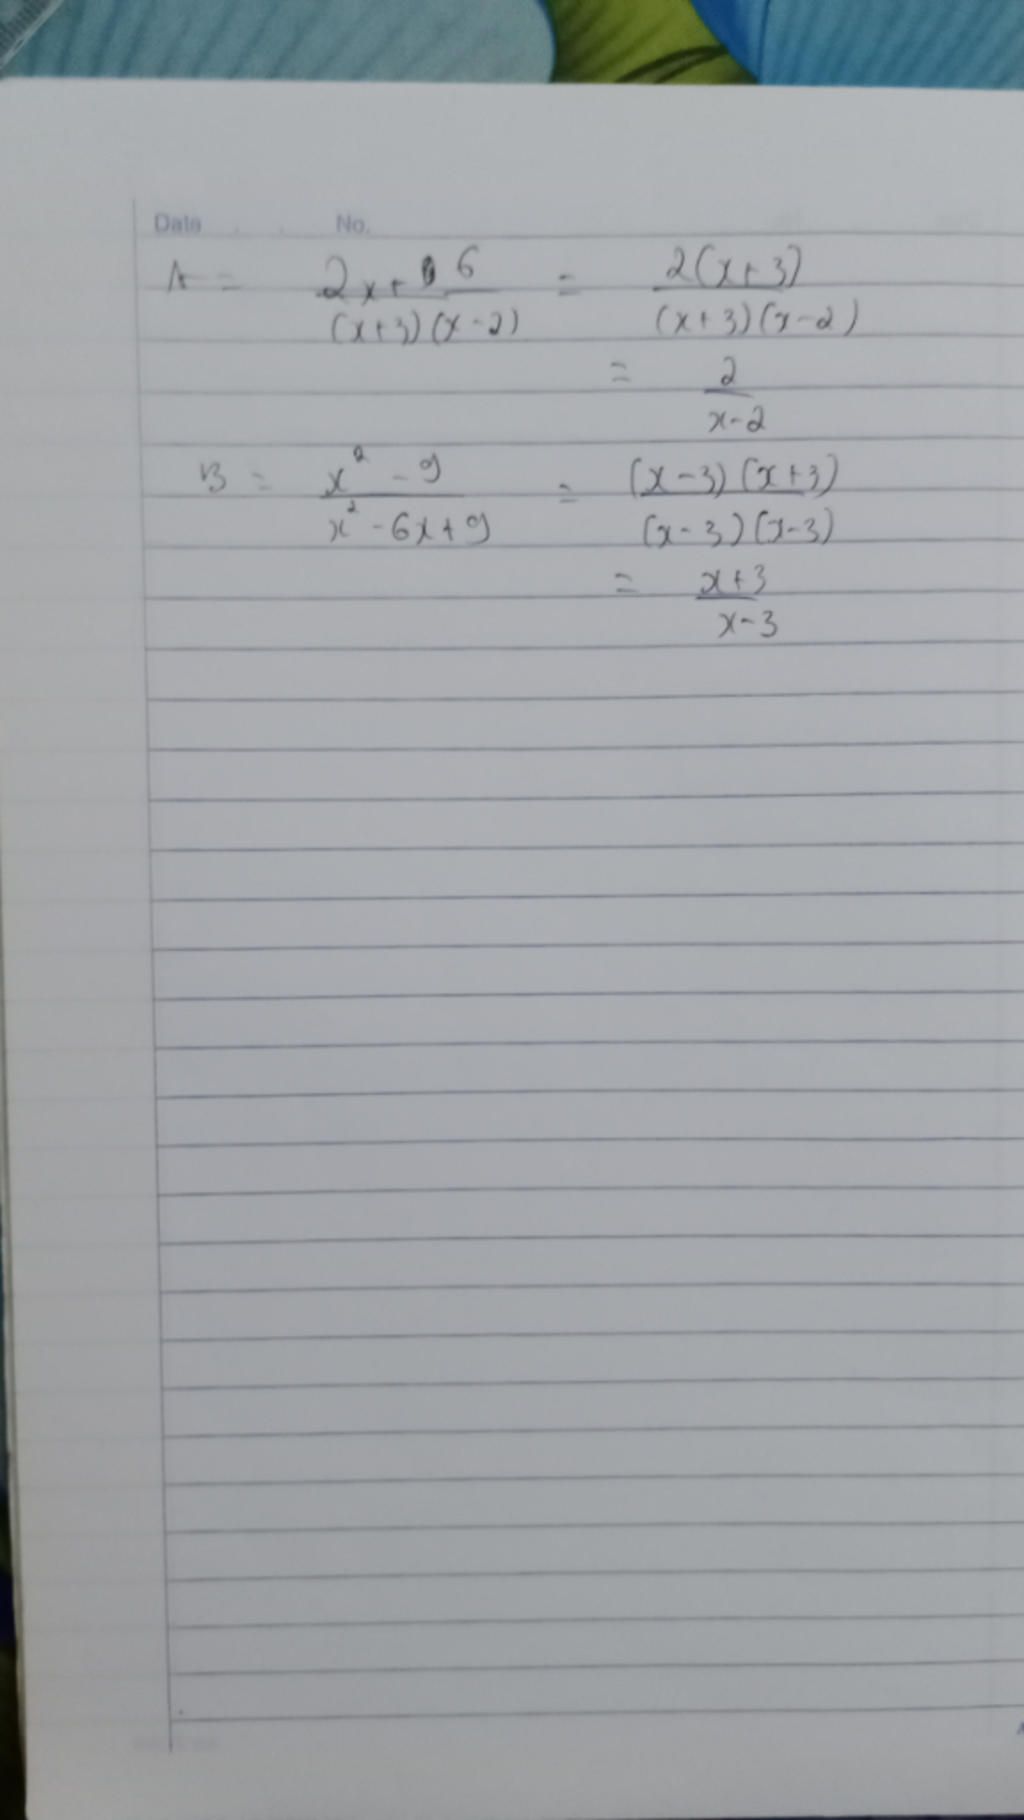 Date No.
A = 2x + 6 / (x+3)(x-2) = 2(x+3) / (x+3)(x-2)
= 2 / x-2
B = x² - 9 / x² - 6x + 9 = (x-3)(x+3) / (x-3)(x-3)
= x+3 / x-3